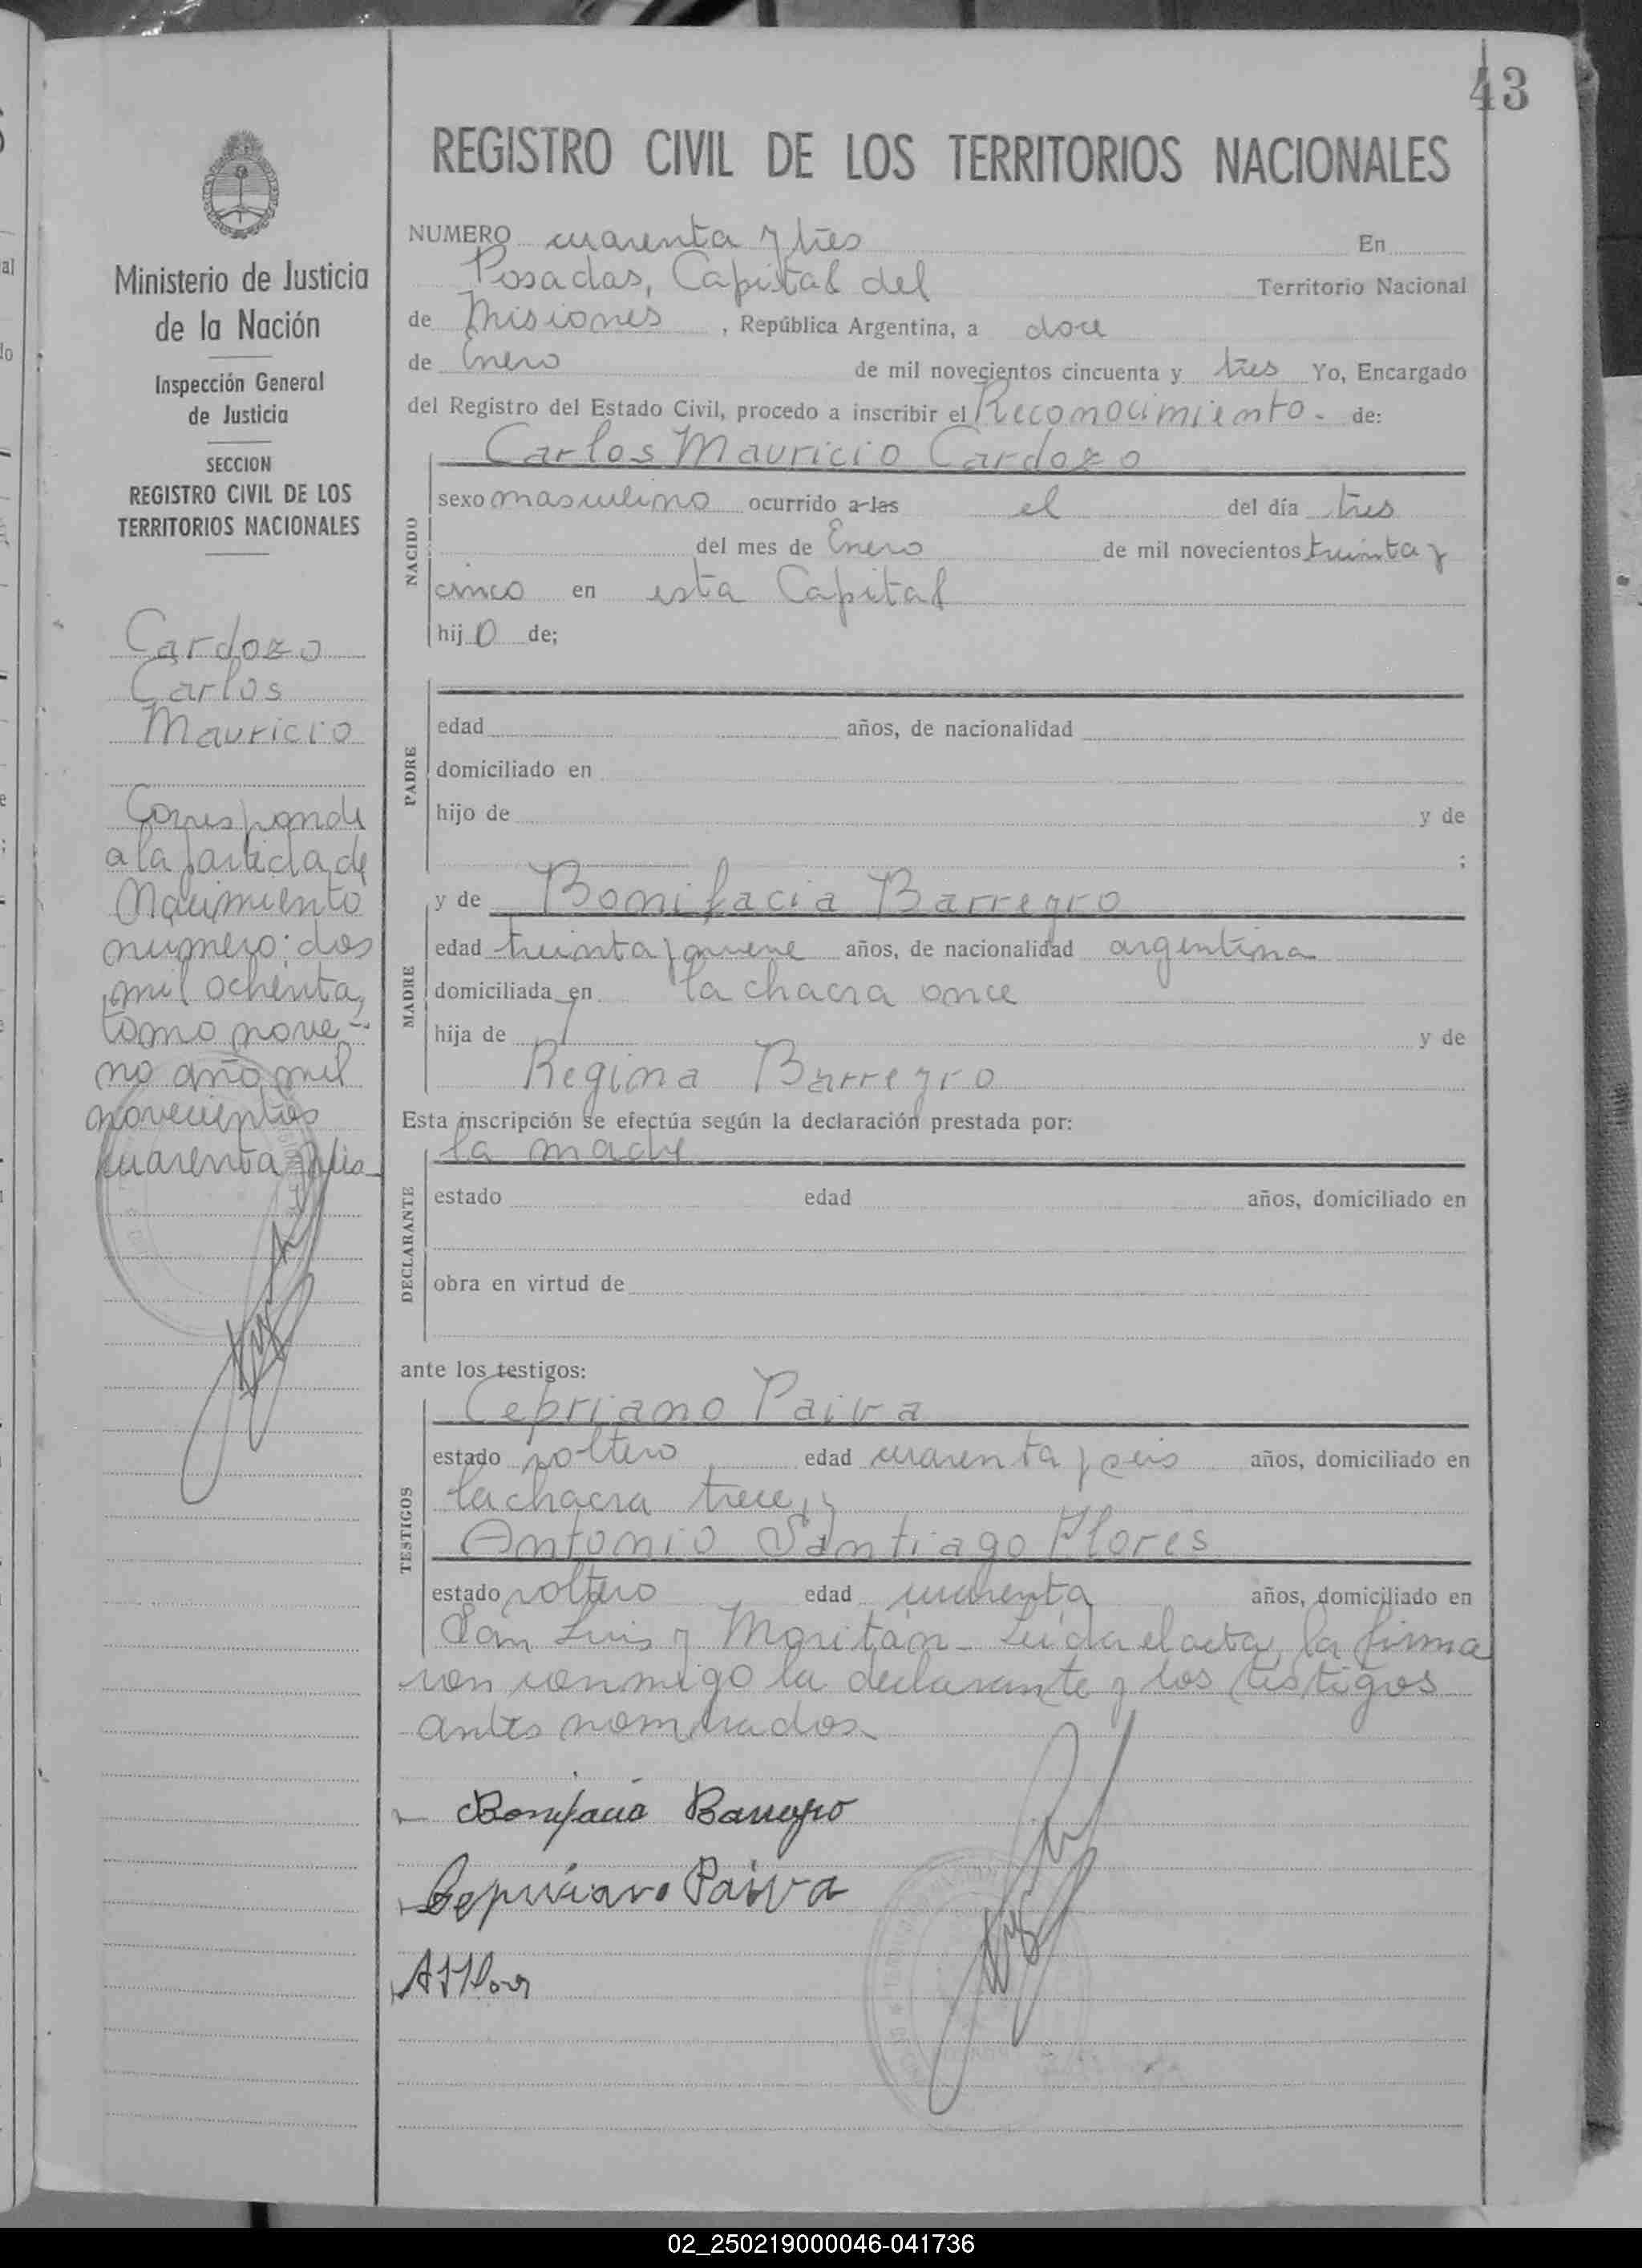 43
REGISTRO CIVIL DE LOS TERRITORIOS NACIONALES
Ministerio de Justicia
de la Nación
Inspección General
de Justicia
SECCION
REGISTRO CIVIL DE LOS
TERRITORIOS NACIONALES
Cardozo
Carlos
Mauricio
Corresponde
a la partida de
Nacimiento
numero: dos
mil ochenta,
tomo nove-
no año mil
novecientos
cuarenta
NUMERO cuarenta y tres En
Posadas, Capital del Territorio Nacional
de Misiones, República Argentina, a doce
de Enero de mil novecientos cincuenta y tres Yo, Encargado
del Registro del Estado Civil, procedo a inscribir el Reconocimiento - de:
Carlos Mauricio Cardozo
NACIDO
sexo masculino ocurrido a las el del día tres
del mes de Enero de mil novecientos treinta y
cinco en esta Capital
hijo de;
PADRE
edad años, de nacionalidad
domiciliado en
hijo de y de
;
MADRE
y de Bonifacia Barreyro
edad treinta y nueve años, de nacionalidad argentina
domiciliada en la chacra once
hija de y de
Regina Barreyro
Esta inscripción se efectúa según la declaración prestada por:
la madre
DECLARANTE
estado edad años, domiciliado en
obra en virtud de
ante los testigos:
TESTIGOS
Cepriano Paiva
estado soltero edad cuarenta y seis años, domiciliado en
la chacra trece, y
Antonio Santiago Flores
estado soltero edad cuarenta años, domiciliado en
San Luis y Moritán - Leida el acta, la firma
con conmigo la declarante y los testigos
antes nombrados.
Bonifacia Barreyro
Cepriano Paiva
02_250219000046-041736